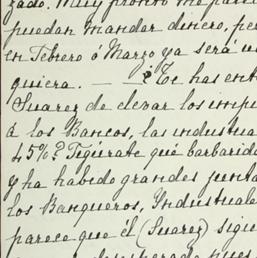 zado. Muy pronto me par
puedan mandar dinero, pe
en Febrero ó Marzo ya será
quiera. — ¿Te has ent
Suarez de elevar los imp
á los Bancos, las industria
45%? Figúrate qué barbarida
y ha habido grandes junta
los Banqueros, Industriale
parece que él (Suarez) sigu